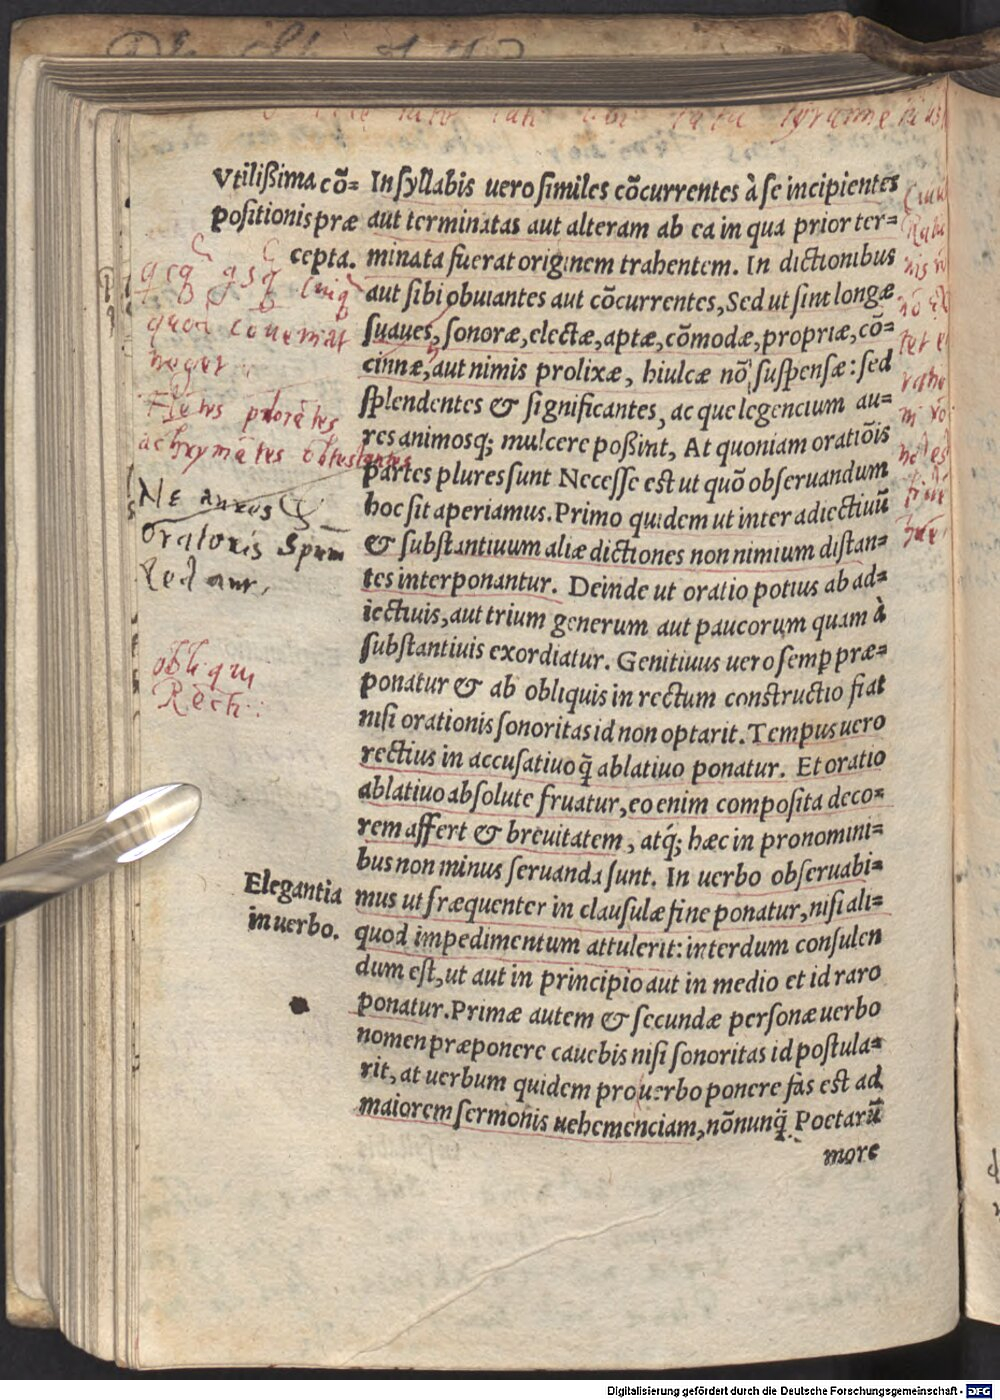 Vtilißima cō=
positionis præ
cepta.
In syllabis uero similes cōcurrentes à se incipientes
aut terminatas aut alteram ab ea in qua prior ter=
minata fuerat originem trahentem. In dictionibus
aut sibi obuiantes aut cōcurrentes, Sed ut sint longæ
suaues, sonoræ, electæ, aptæ, cōmodæ, propriæ, cō=
cinnæ, aut nimis prolixæ, hiulcæ nō suspensæ: sed
splendentes & significantes, ac que legencium au=
res animosq; mulcere poßint, At quoniam oratiōis
partes plures sunt Necesse est ut quō obseruandum
hoc sit aperiamus. Primo quidem ut inter adiectiuū
& substantiuum aliæ dictiones non nimium distan=
tes interponantur. Deinde ut oratio potius ab ad=
iectiuis, aut trium generum aut paucorum quam à
substantiuis exordiatur. Genitiuus uero semp præ=
ponatur & ab obliquis in rectum constructio fiat
nisi orationis sonoritas id non optarit. Tempus uero
rectius in accusatiuo q̄ ablatiuo ponatur. Et oratio
ablatiuo absolute fruatur, eo enim composita deco=
rem affert & breuitatem, atq́; hæc in pronomini=
bus non minus seruanda sunt. In uerbo obseruabi=
mus ut fræquenter in clausulæ fine ponatur, nisi ali=
quod impedimentum attulerit: interdum consulen
dum est, ut aut in principio aut in medio et id raro
ponatur. Primæ autem & secundæ personæ uerbo
nomen præponere cauebis nisi sonoritas id postula=
rit, at uerbum quidem pro uerbo ponere fas est ad
maiorem sermonis uehemenciam, nōnunq̄ Poetarū
more
Elegantia
in uerbo.
quod conueniat
Ne aureos
Orationis Spum
sed aur,
obliqui
Recti
Digitalisierung gefördert durch die Deutsche Forschungsgemeinschaft - DFG